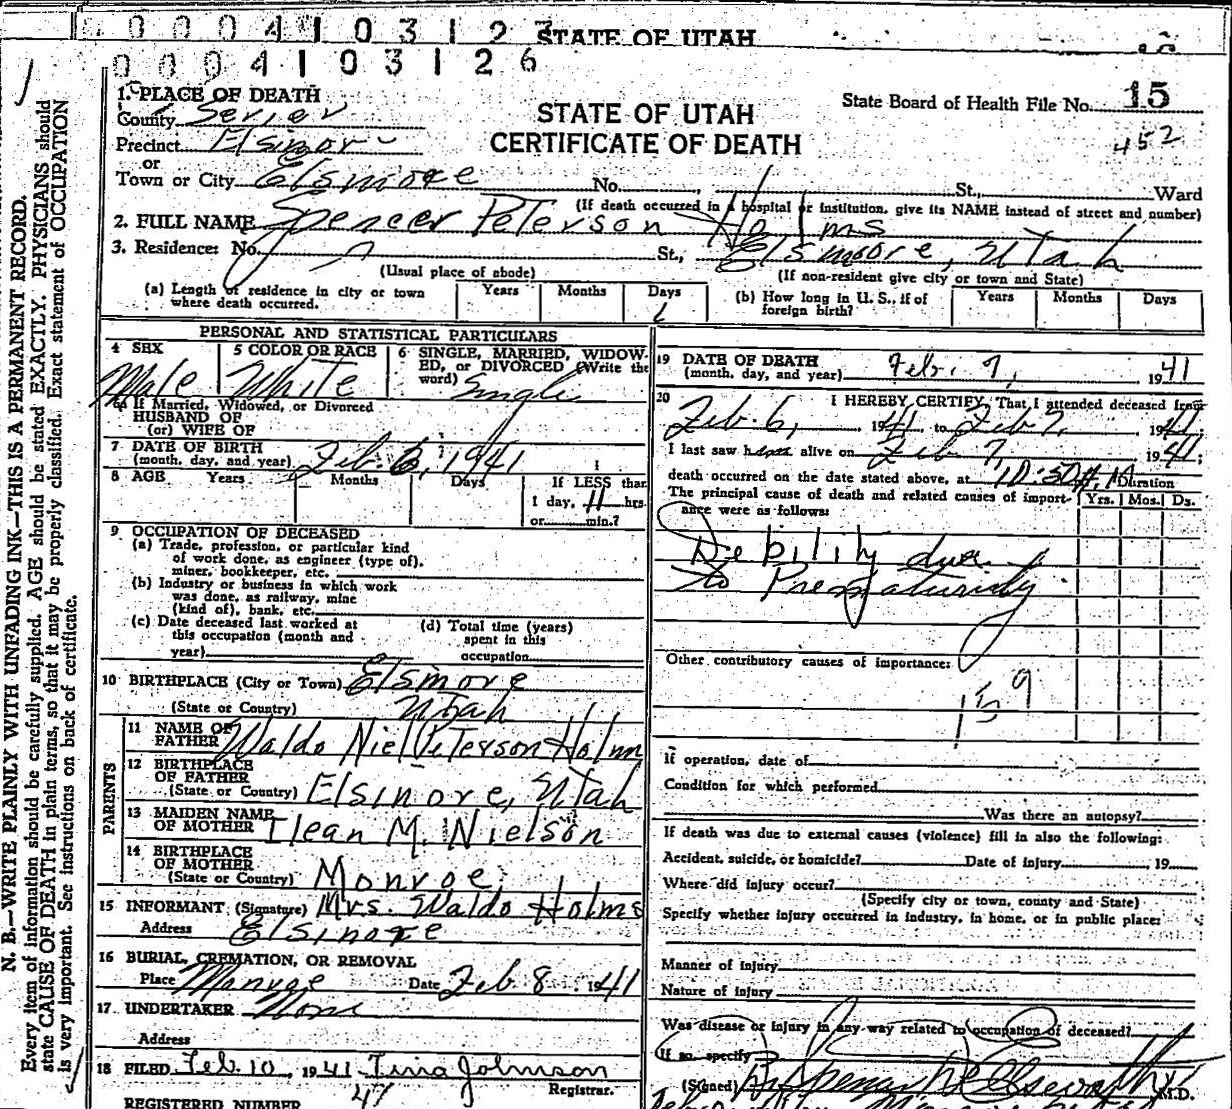 0 0 0 4 1 0 3 1 2 3 STATE OF UTAH
0 0 0 4 1 0 3 1 2 6
N. B.—WRITE PLAINLY WITH UNFADING INK—THIS IS A PERMANENT RECORD.
Every item of information should be carefully supplied. AGE should be stated EXACTLY. PHYSICIANS should
state CAUSE OF DEATH in plain terms, so that it may be properly classified. Exact statement of OCCUPATION
is very important. See instructions on back of certificate.
STATE OF UTAH
CERTIFICATE OF DEATH
State Board of Health File No. 15
452
1. PLACE OF DEATH
County Sevier
Precinct Elsinore
or
Town or City Elsinore No. St. Ward
(If death occurred in a hospital or institution, give its NAME instead of street and number)
2. FULL NAME Spencer Peterson Holms
3. Residence: No. St., Elsinore, Utah
(Usual place of abode) (If non-resident give city or town and State)
(a) Length of residence in city or town where death occurred. Years Months Days
(b) How long in U. S., if of foreign birth? Years Months Days
PERSONAL AND STATISTICAL PARTICULARS
4 SEX Male
5 COLOR OR RACE White
6 SINGLE, MARRIED, WIDOWED, or DIVORCED (Write the word) Single
6a If Married, Widowed, or Divorced
HUSBAND OF
(or) WIFE OF
7 DATE OF BIRTH
(month, day, and year) Feb. 6, 1941
8 AGE Years Months Days If LESS than
1 day, 11 hrs.
or min.?
9 OCCUPATION OF DECEASED
(a) Trade, profession, or particular kind
of work done, as engineer (type of),
miner, bookkeeper, etc.
(b) Industry or business in which work
was done, as railway, mine
(kind of), bank, etc.
(c) Date deceased last worked at
this occupation (month and
year)
(d) Total time (years)
spent in this
occupation
10 BIRTHPLACE (City or Town) Elsinore
(State or Country) Utah
PARENTS
11 NAME OF
FATHER Waldo Niel Peterson Holm
12 BIRTHPLACE
OF FATHER
(State or Country) Elsinore, Utah
13 MAIDEN NAME
OF MOTHER Ilean M. Nielson
14 BIRTHPLACE
OF MOTHER
(State or Country) Monroe
15 INFORMANT (Signature) Mrs. Waldo Holms
Address Elsinore
16 BURIAL, CREMATION, OR REMOVAL
Place Monroe Date Feb 8 1941
17 UNDERTAKER None
Address
18 FILED Feb 10, 1941 Tina Johnson
Registrar.
REGISTERED NUMBER 47
19 DATE OF DEATH
(month, day, and year) Feb. 7, 1941
20 I HEREBY CERTIFY, That I attended deceased from
Feb. 6, 1941 to Feb 7, 1941
I last saw him alive on Feb 7 1941;
death occurred on the date stated above, at 10:30 A. M. Duration
The principal cause of death and related causes of import- Yrs. Mos. Ds.
ance were as follows:
Debility due
to Prematurity
Other contributory causes of importance:
159
If operation, date of
Condition for which performed
Was there an autopsy?
If death was due to external causes (violence) fill in also the following:
Accident, suicide, or homicide? Date of injury 19
Where did injury occur?
(Specify city or town, county and State)
Specify whether injury occurred in industry, in home, or in public place:
Manner of injury
Nature of injury
Was disease or injury in any way related to occupation of deceased?
If so, specify
(Signed) M.D.